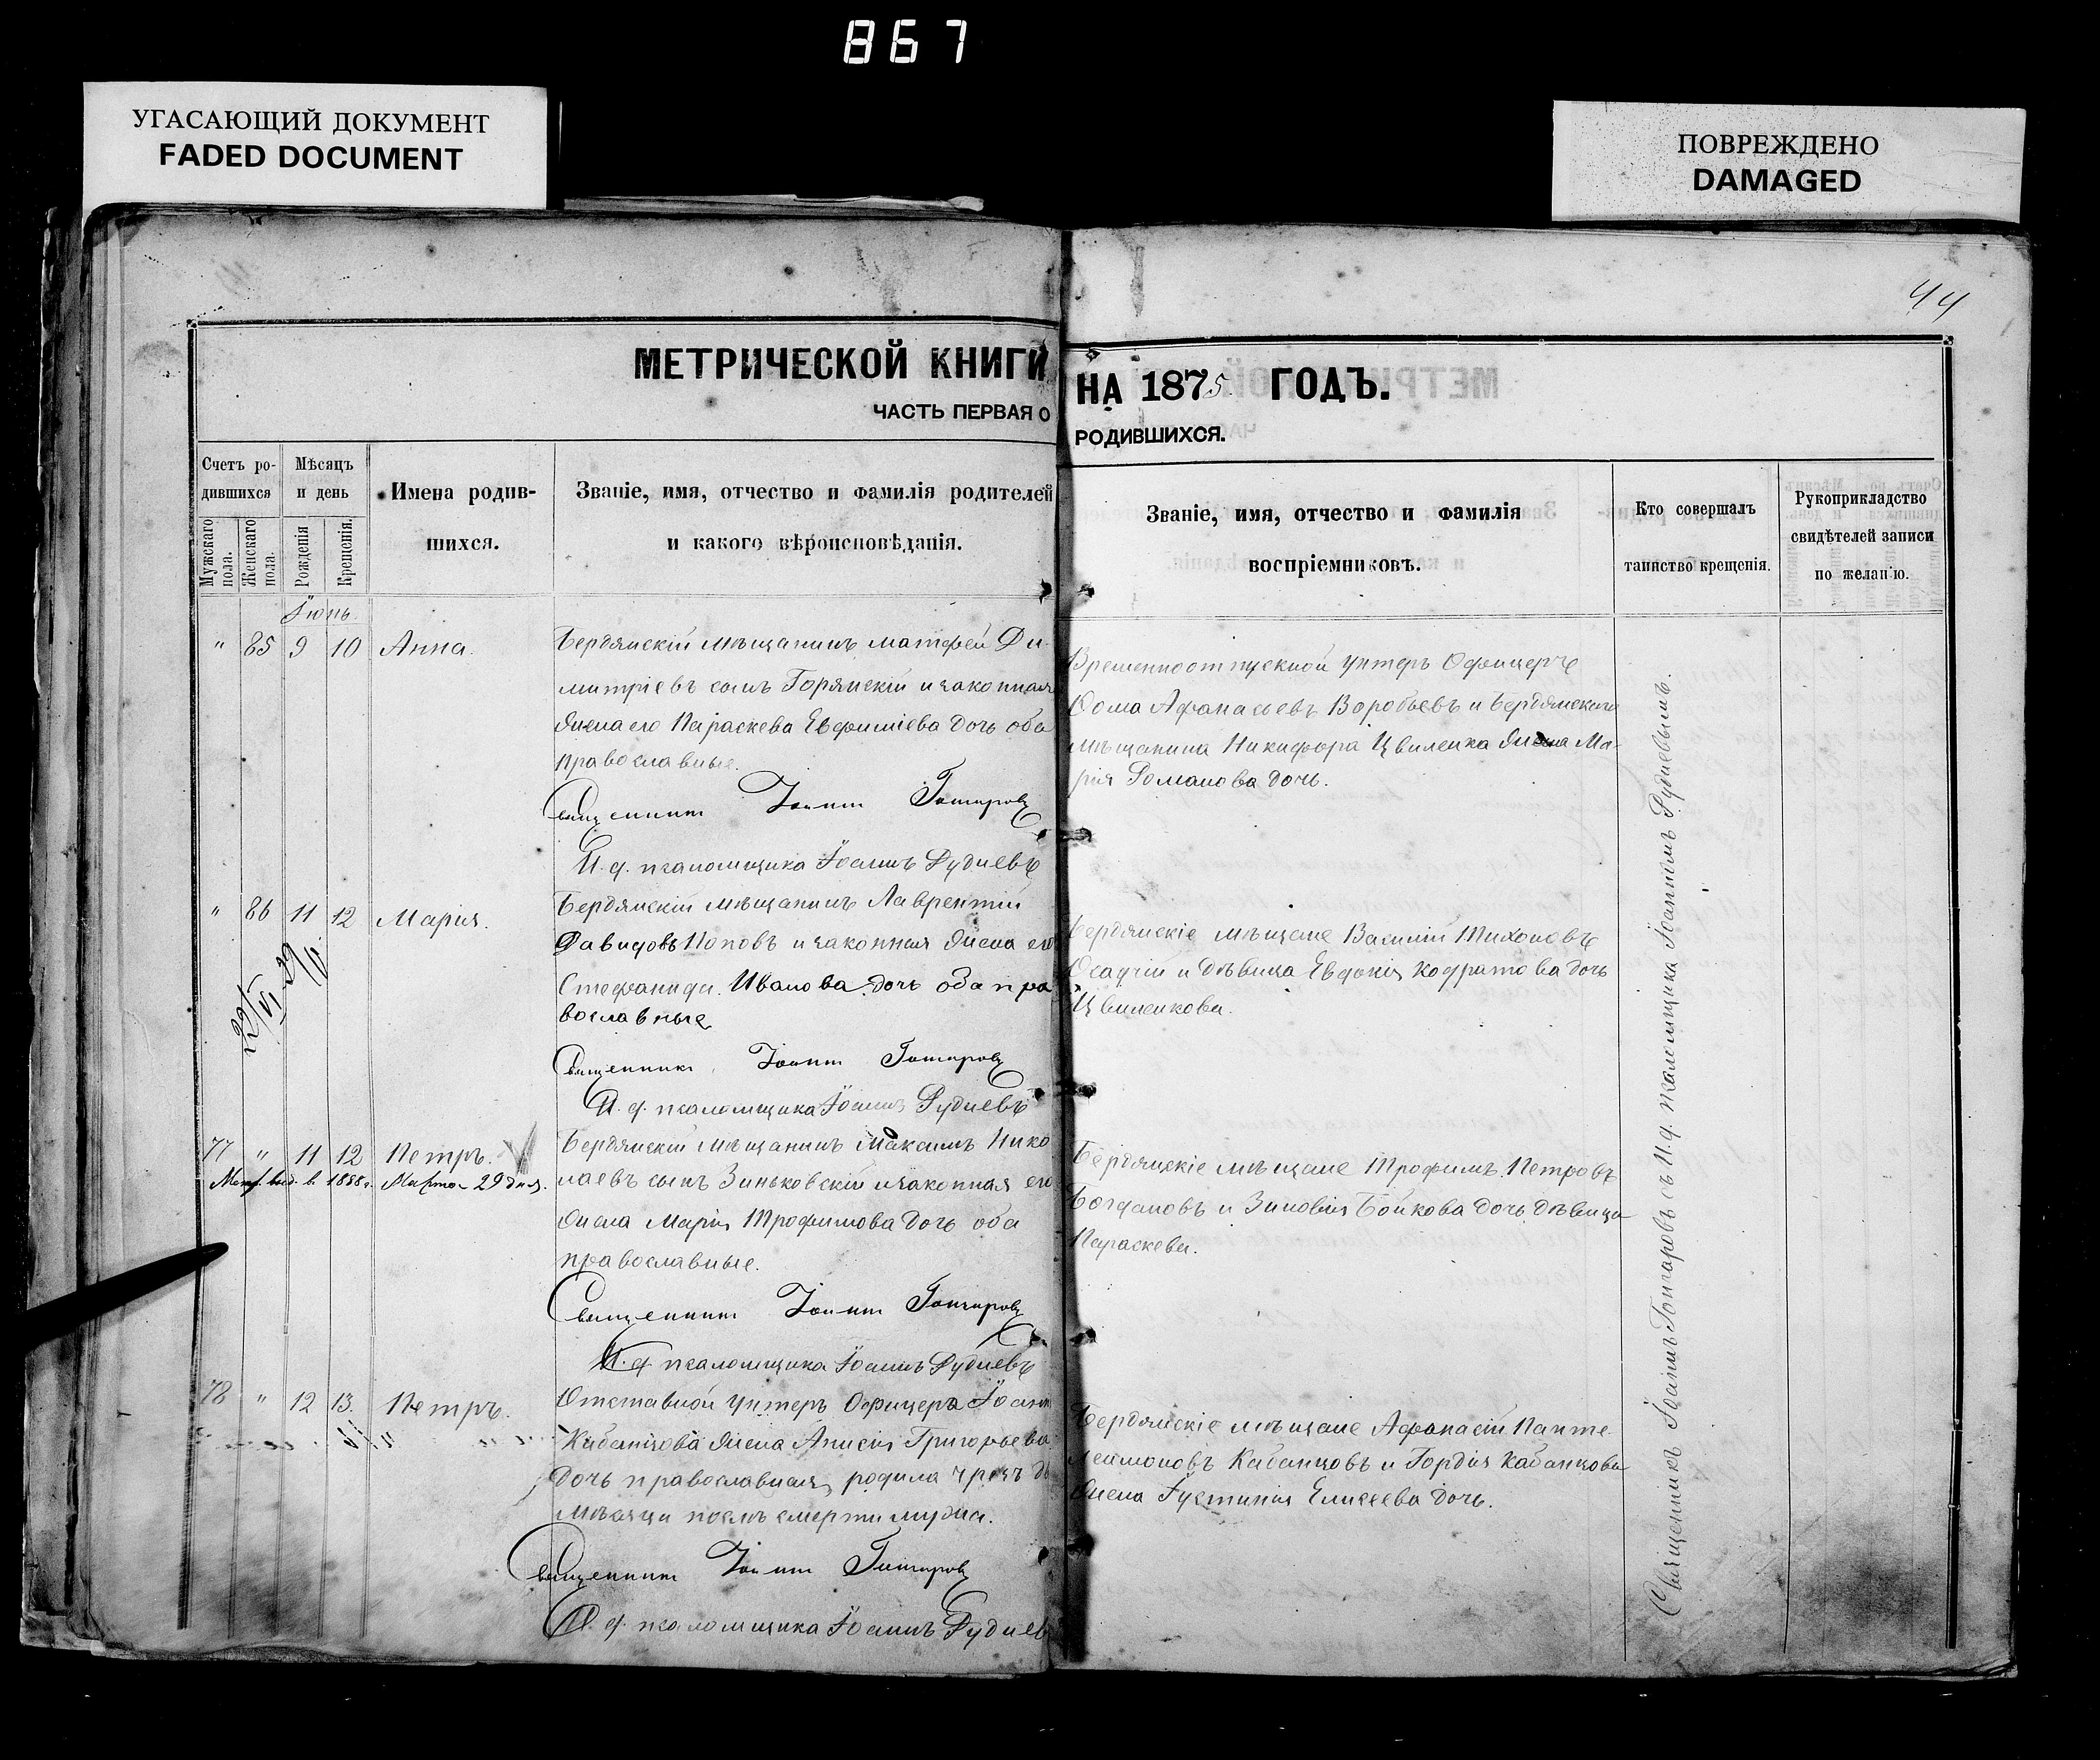 867
УГАСАЮЩИЙ ДОКУМЕНТ
FADED DOCUMENT
ПОВРЕЖДЕНО
DAMAGED
44
МЕТРИЧЕСКОЙ КНИГИ
НА 1875 ГОДЪ.
ЧАСТЬ ПЕРВАЯ О
РОДИВШИХСЯ.
Счетъ ро-
дившихся
Мужскаго пола.
Женскаго пола.
Мѣсяцъ
и день
Рожденія
Крещенія.
Имена родив-
шихся.
Званіе, имя, отчество и фамилія родителей
и какого вѣроисповѣданія.
Званіе, имя, отчество и фамилія
воспріемниковъ.
Кто совершалъ
таинство крещенія.
Рукоприкладство
свидѣтелей записи
по желанію.
Іюнь
" 85 9 10 Анна.
Бердянскій мѣщанинъ Матфей Ди-
митріевъ сынъ Горянскій и законная
жена его Параскева Евфиміева дочь оба
православные.
Священникъ Іоаннъ Гончаровъ
И. д. псаломщика Іоаннъ Рудиевъ
Временноотпускной унтеръ Офицеръ
Фома Афанасьевъ Воробьевъ и Бердянскаго
мѣщанина Никифора Цвиленка жена Ма-
рія Романова дочь.
" 86 11 12 Марія.
Бердянскій мѣщанинъ Лаврентій
Давидовъ Поповъ и законная жена его
Стефанида Иванова дочь оба пра
вославные
Священникъ Іоаннъ Гончаровъ
И. д. псаломщика Іоаннъ Рудиевъ
Бердянскіе мѣщане Василій Тихоновъ
Осадчій и дѣвица Евдокія Кодратова дочь
Цвиленкова.
77 " 11 12 Петръ.
Метр. выд. в. 1888 г. Марта 29 дня.
Бердянскій мѣщанинъ Максимъ Нико
лаевъ сынъ Зиньковскій и законная его
жена Марія Трофимова дочь оба
православные.
Священникъ Іоаннъ Гончаровъ
И. д. псаломщика Іоаннъ Рудиевъ
Бердянскіе мѣщане Трофимъ Петровъ
Богдановъ и Зиновія Бойкова дочь дѣвица
Параскева.
78 " 12 13. Петръ.
Отставной унтеръ Офицера Іоанна
Кабанцова жена Анисія Григорьева
дочь православная, родила чрезъ
мѣсяца послѣ смерти мужа.
Священникъ Іоаннъ Гончаровъ
И. д. псаломщика Іоаннъ Рудиев
Бердянскіе мѣщане Афанасій Панте
леймоновъ Кабанцовъ и Гордія Кабанцова
жена Іустинія Елисеева дочь.
Священникъ Іоаннъ Гончаровъ съ И. д. псаломщика Іоанномъ Рудиевымъ.